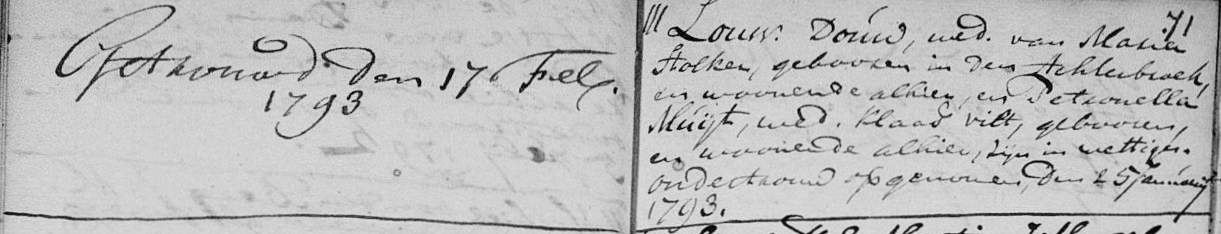 Getrouwd den 17 Feb.
1793
71
III Louw. Douw, wed. van Maria
Stolker, gebooren in den Achterbroek,
en woonende alhier, en Petronella
Muijt, wed. Klaas Vilt, gebooren,
en woonende alhier, zijn in wettigen
ondertrouw opgenomen, den 25 Januarij
1793.